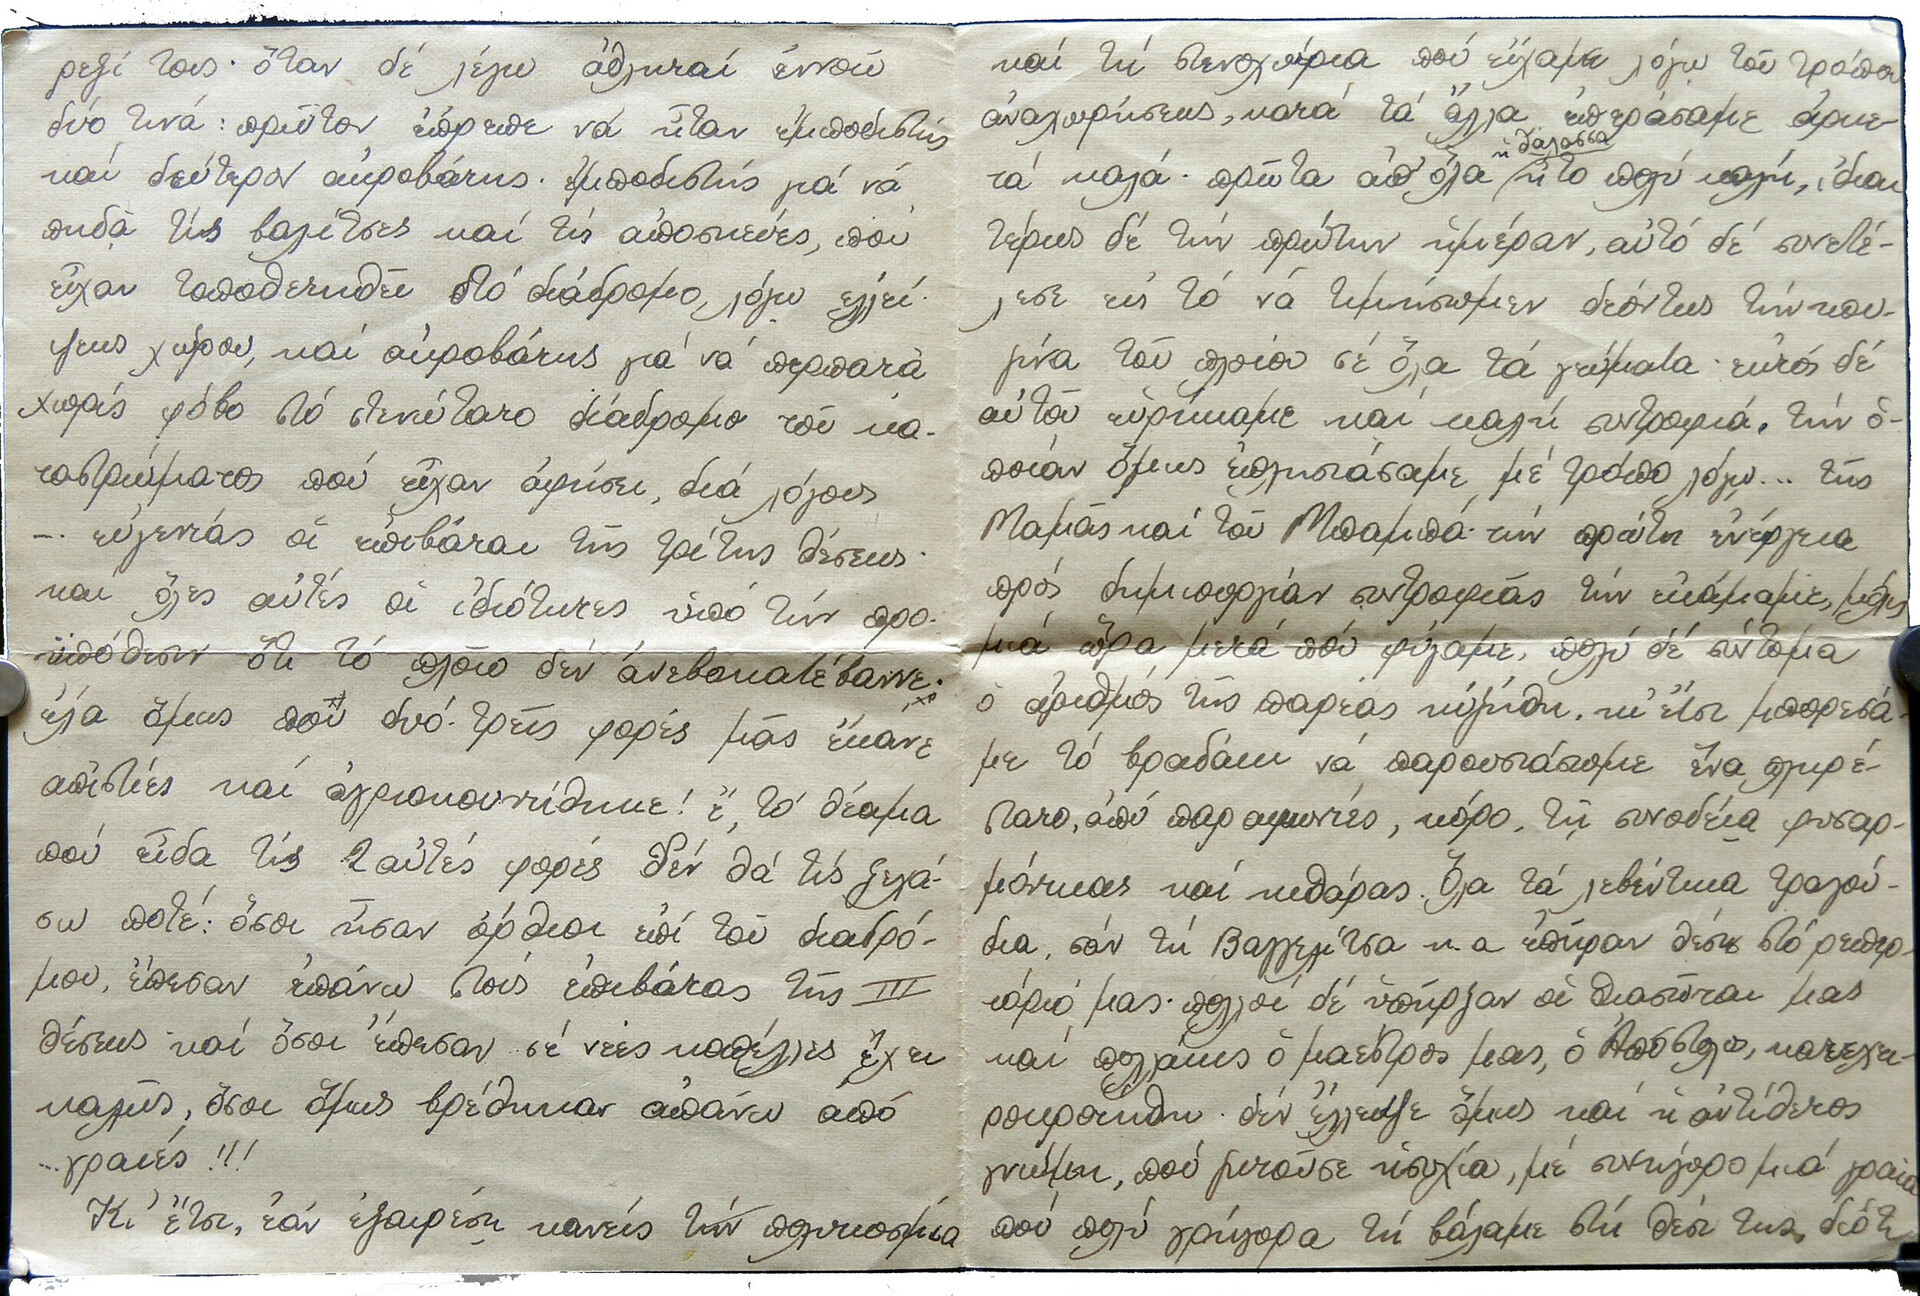 ρεξί τους· ὅταν δέ λέγω ἀθληταί ἐννοῶ
δύο τινά: πρῶτον ἔπρεπε νά ἦταν ἐμποδιστής
καί δεύτερον ἀκροβάτης. ἐμποδιστής γιά νά
πηδᾶ τίς βαλίτσες καί τίς ἀποσκευές, πού
εἶχαν τοποθετηθεῖ στό διάδρομο, λόγω ἐλλεί-
ψεως χώρου, καί ἀκροβάτης γιά νά περπατᾶ
χωρίς φόβο στό στενώτατο διάδρομο τοῦ κα-
ταστρώματος πού εἶχαν ἀφήσει, διά λόγους
... εὐγενείας οἱ ἐπιβάται τῆς τρίτης θέσεως·
καί ὅλες αὐτές οἱ ἰδιότητες ὑπό τήν προ-
ϋπόθεσιν ὅτι τό πλοῖο δέν ἀνεβοκατέβαινε·
ἔλα ὅμως πού δυό-τρεῖς φορές μᾶς ἔκανε
ἀπιστίες καί ἀγριοκουνήθηκε! ἔ, τό θέαμα
πού εἶδα τίς 2 αὐτές φορές δέν θά τίς ξεχά-
σω ποτέ: ὅσοι ἦσαν ὄρθιοι ἐπί τοῦ διαδρό-
μου, ἔπεσαν ἐπάνω στούς ἐπιβάτας τῆς III
θέσεως· καί ὅσοι ἔπεσαν σέ νέες κοπέλλες ἔχει
καλῶς, ὅσοι ὅμως βρέθηκαν ἀπάνω ἀπό
...γραιές!!!
Κι' ἔτσι, ἐάν ἐξαιρέσῃ κανείς τήν πολυκοσμία
καί τή στενοχώρια πού εἴχαμε λόγω τοῦ τρόπου
ἀναχωρήσεως, κατά τά ἄλλα ἐπεράσαμε ἀρκε-
τά καλά· πρῶτα ἀπ' ὅλα ἡ θάλασσα ἦτο πολύ καλή, ἰδιαι
τέρως δέ τήν πρώτην ἡμέραν, αὐτό δέ συνετέ-
λεσε εἰς τό νά τιμήσωμεν δεόντως τήν κου-
ζίνα τοῦ πλοίου σέ ὅλα τά γεύματα· ἐκτός δέ
αὐτοῦ εὑρήκαμε καί καλή συντροφιά, τήν ὁ-
ποίαν ὅμως ἐπλησιάσαμε μέ τρόπο λόγω... τῆς
Μαμᾶς καί τοῦ Μπαμπᾶ· τήν πρώτη ἐνέργεια
πρός δημιουργίαν συντροφιᾶς τήν ἐκάμαμε, μόλις
μιά ὥρα μετά πού φύγαμε, πολύ δέ σύντομα
ὁ ἀριθμός τῆς παρέας ηὐξήθη, κι' ἔτσι μπορεσά-
με τό βραδάκι νά παρουσιάσωμε ἕνα πληρέ-
στατο, ἀπό παραφωνίες, κόρο, τῇ συνοδείᾳ φυσαρ-
μόνικας καί κιθάρας. Ὅλα τά λεβέντικα τραγού-
δια, σάν τή Βαγγελίτσα κ.α ἐπῆραν θέση στό ρεπερ-
τόριό μας· πολλοί δέ ὑπῆρξαν οἱ θιασῶται μας
καί πολλάκις ὁ μαέστρος μας, ὁ Ἀπόστολος, κατεχει-
ροκροτήθη. δέν ἔλειψε ὅμως καί ἡ ἀντίθετος
γνώμη, πού ζητοῦσε ἡσυχία, μέ συνήγορο μιά γραῖα
πού πολύ γρήγορα τή βάλαμε στή θέσι της, διότι